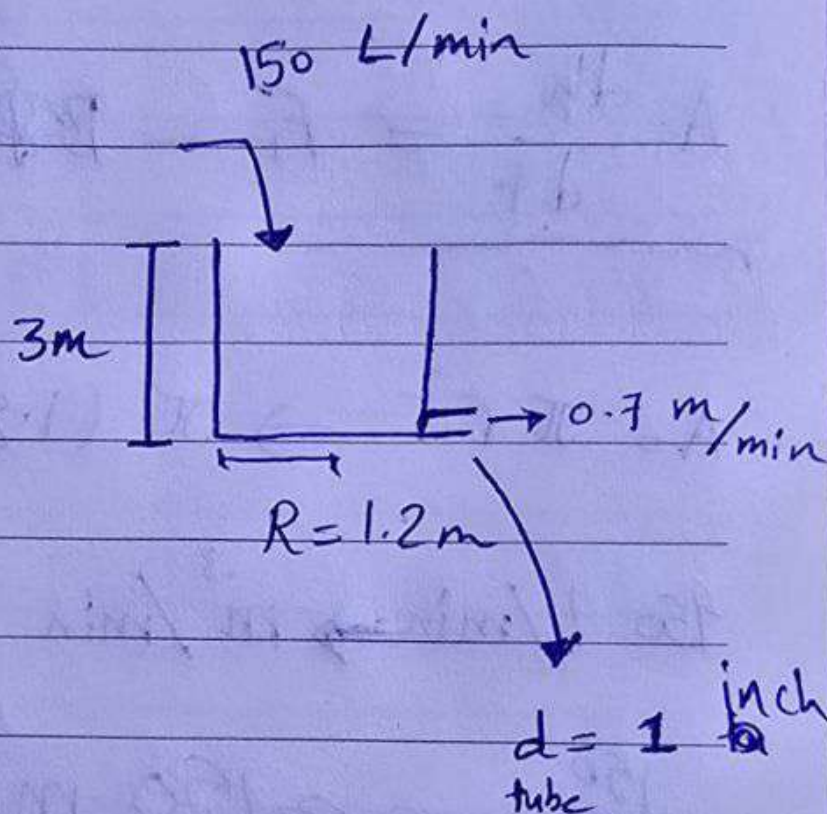 150 L/min
3m
0.7 m/min
R = 1.2m
d = 1 inch
tube